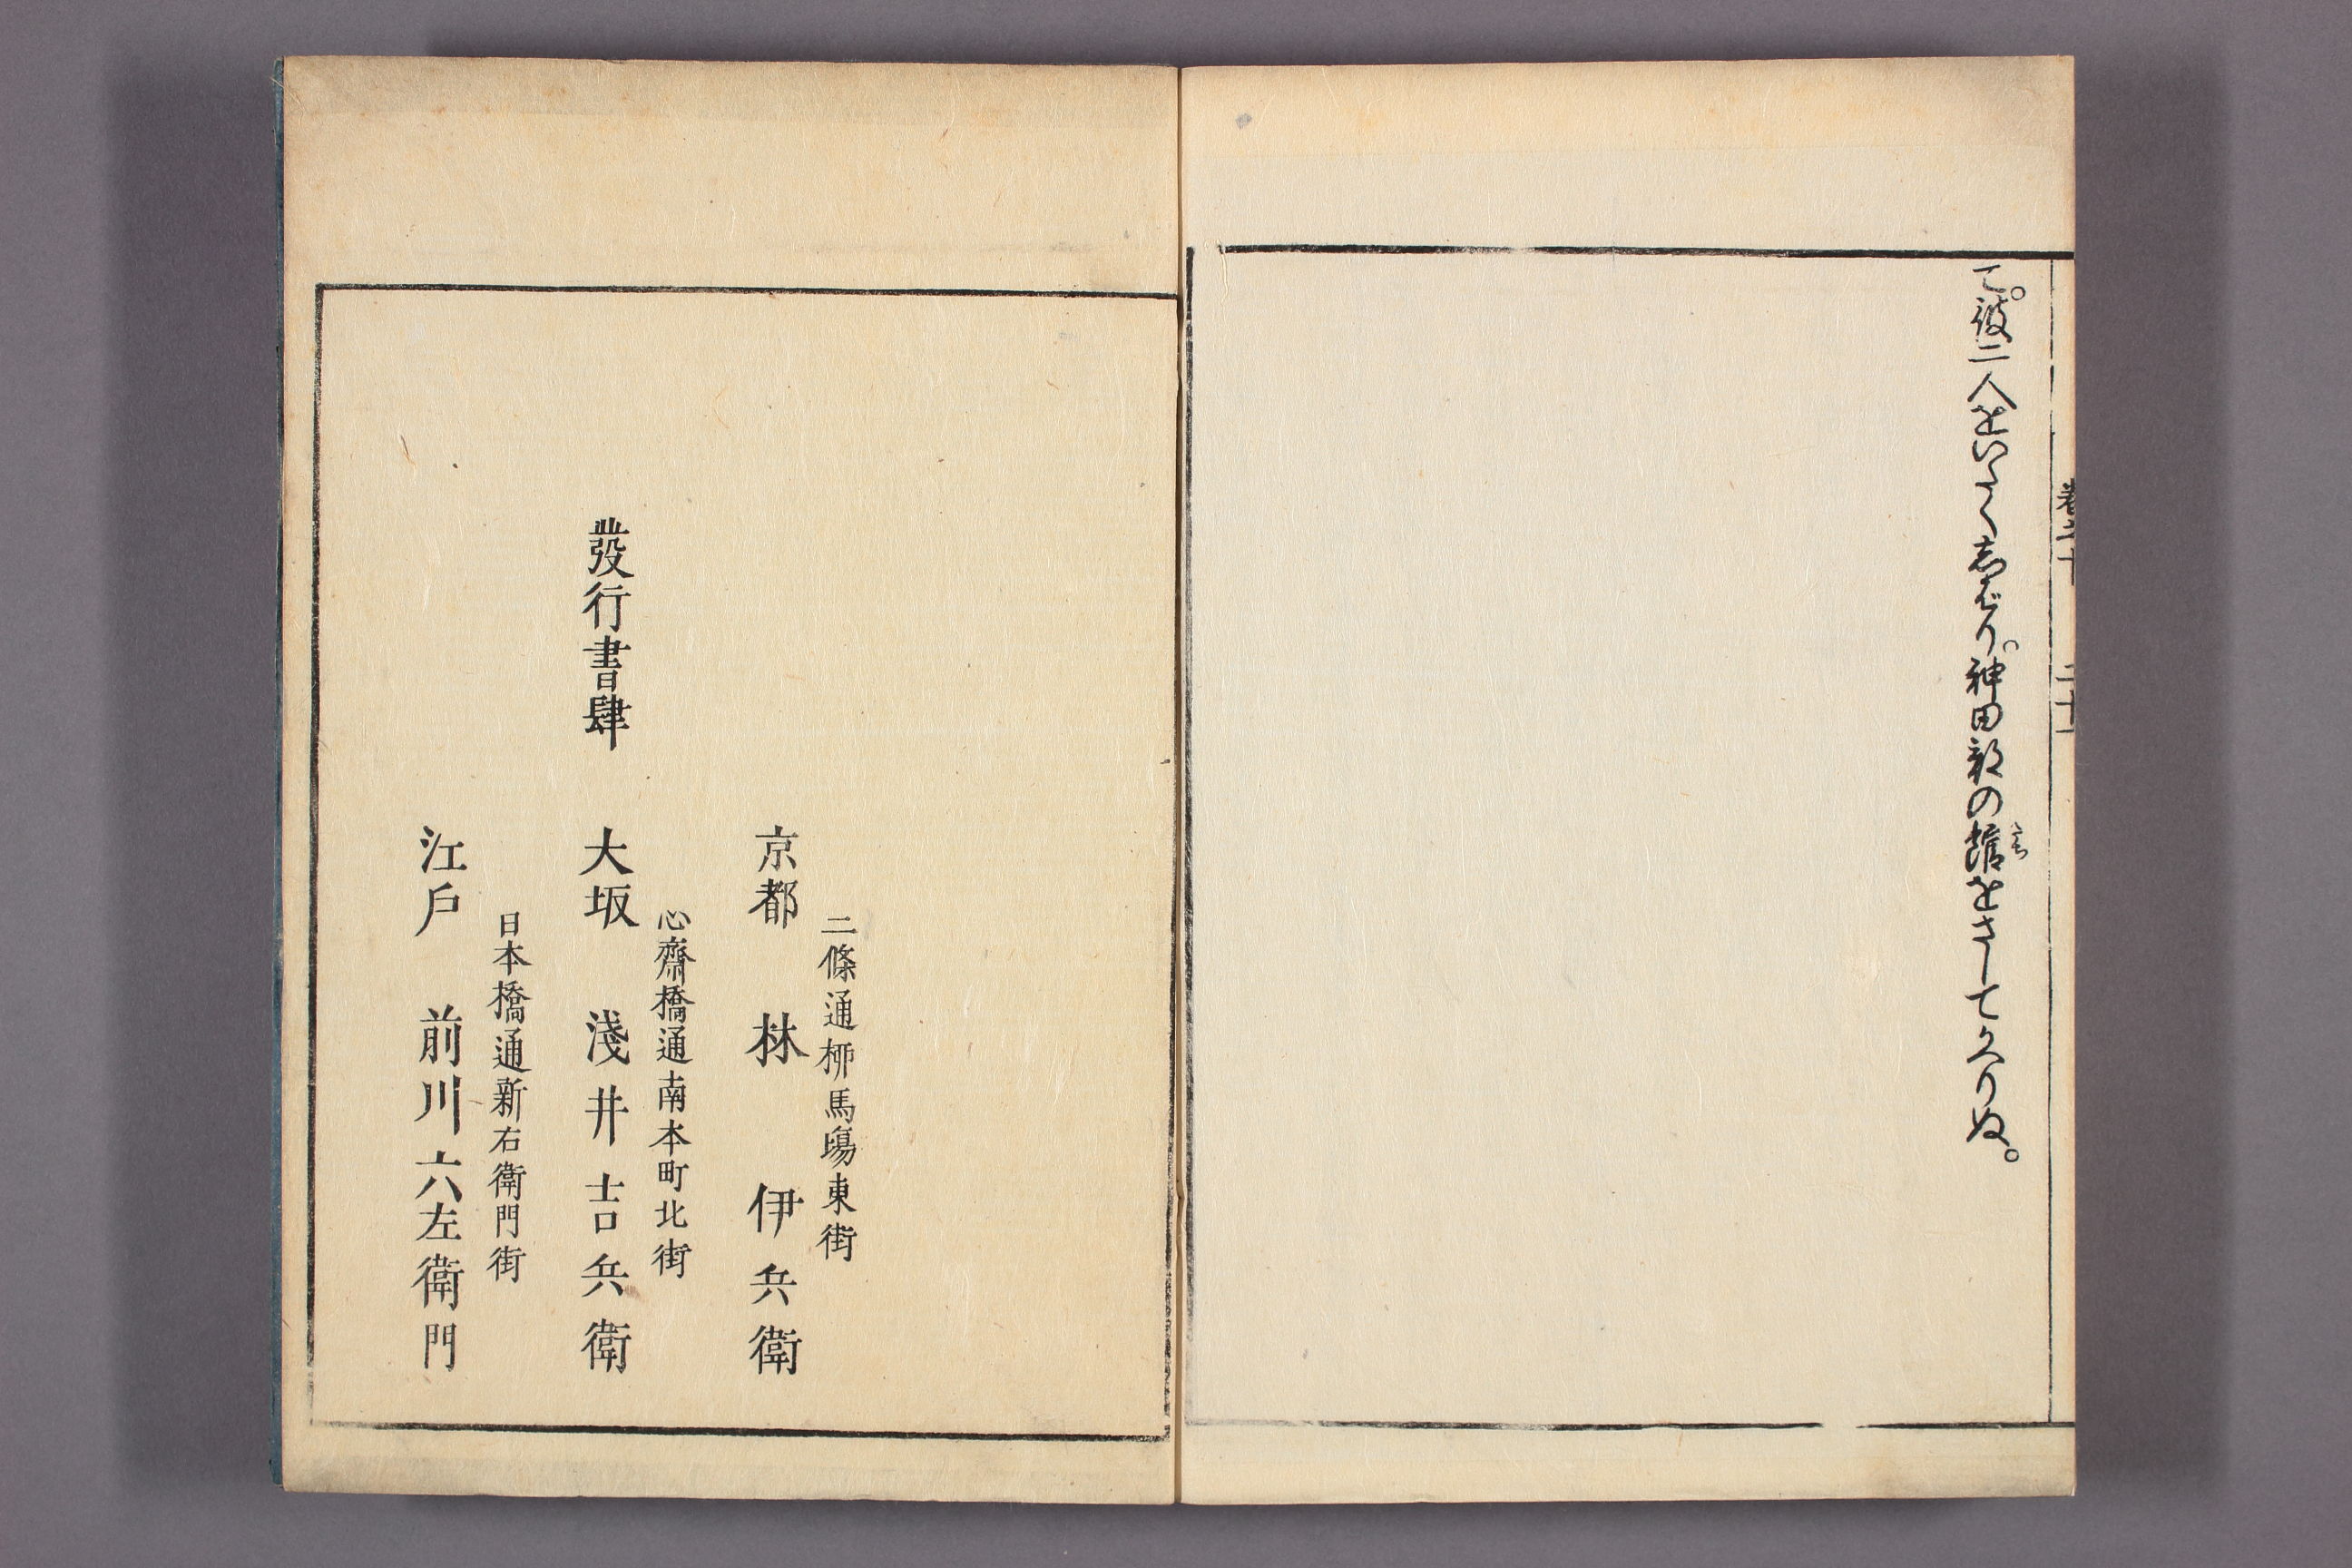 巻之十 二十一
て。彼二人をいたくしばり。神田郡の舘をさしてかへりぬ。
たち
二條通栁馬塲東街
京都 林 伊兵衛
心齋橋通南本町北街
發行書肆 大坂 淺井吉兵衛
日本橋通新右衛門街
江戸 前川六左衛門